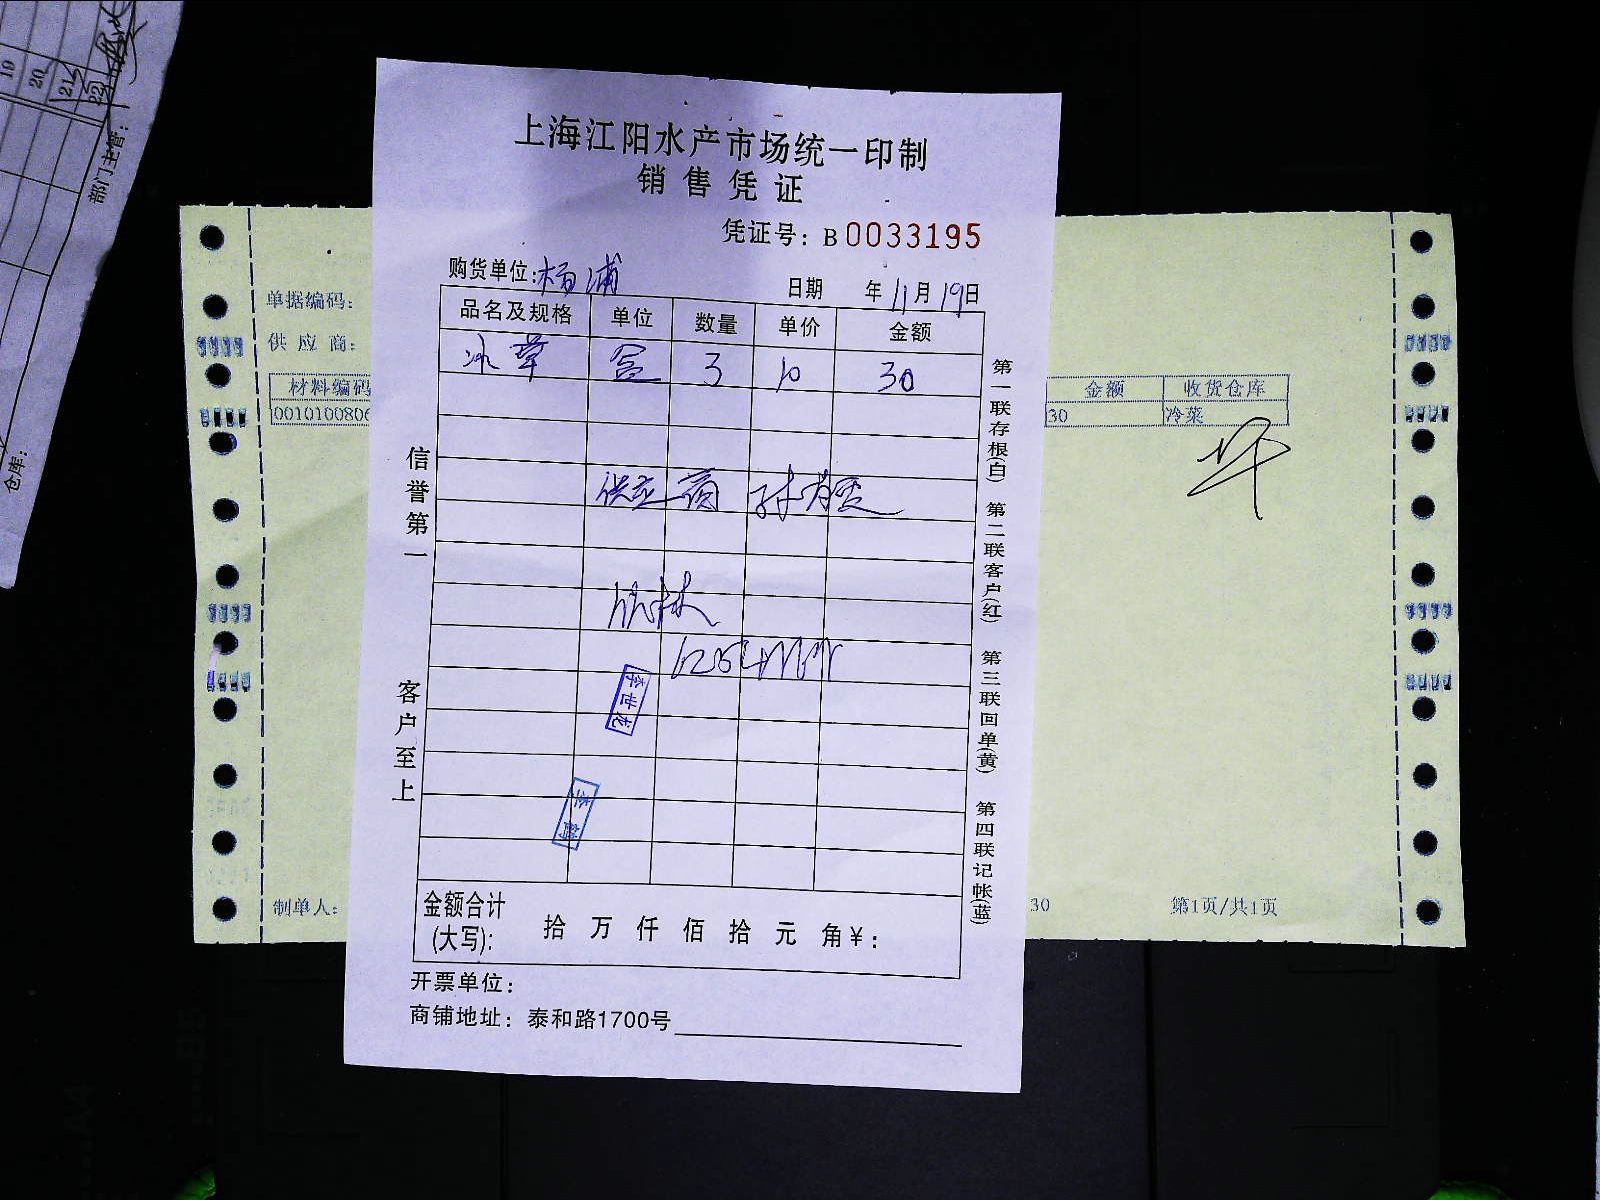 19
20
21
22
部门主管:
仓库:
上海江阳水产市场统一印制
销售凭证
凭证号: B 0033195
购货单位:杨浦 日期 年11月19日
品名及规格 单位 数量 单价 金额
冰草 盒 3 10 30
供应商 孙
李世龙
信誉第一
客户至上
第一联存根(白) 第二联客户(红) 第三联回单(黄) 第四联记帐(蓝)
金额合计(大写): 拾 万 仟 佰 拾 元 角 ¥:
开票单位:
商铺地址: 泰和路1700号
单据编码:
供应商:
材料编码 金额 收货仓库
0010100806 30 冷菜
制单人: 30 第1页/共1页